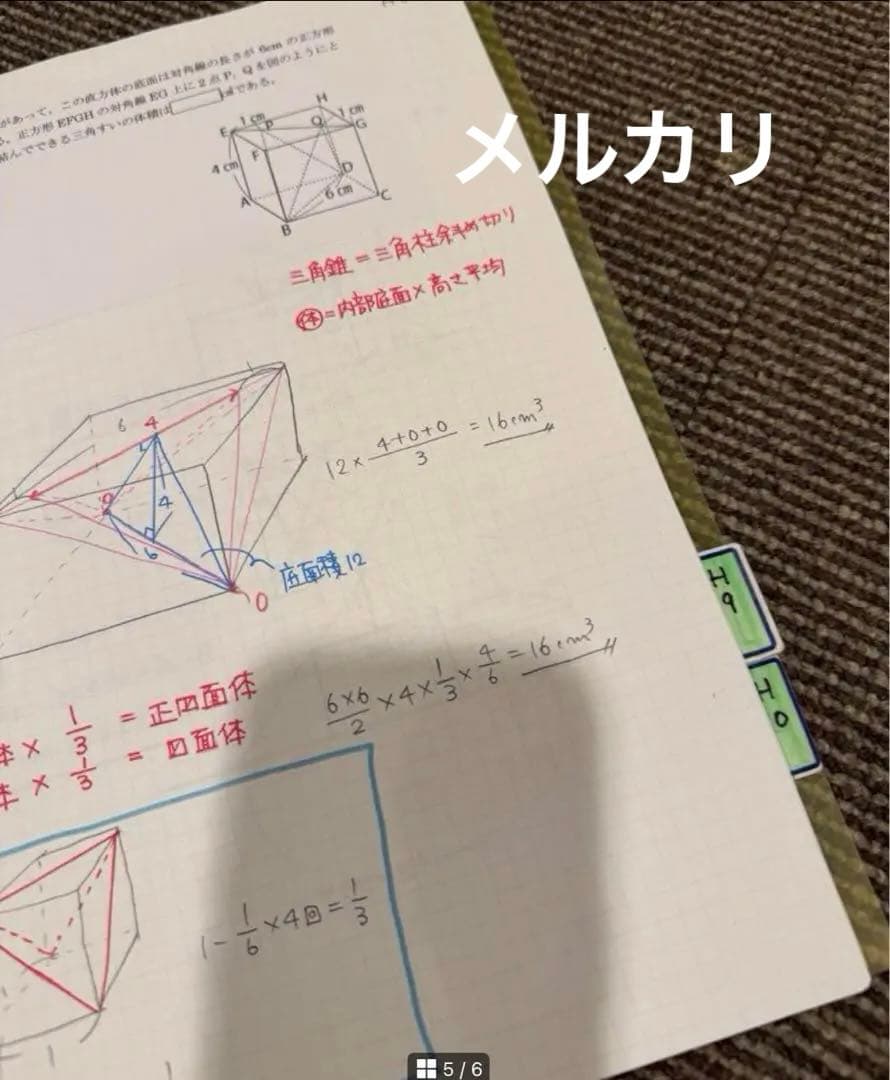 メルカリ
があって、この直方体の底面は対角線の長さが 6cm の正方形
正方形 EFGH の対角線 EG 上に2点 P, Q を図のようにと
結んでできる三角すいの体積は cm³である。
H
1 cm
1 cm
E
P
Q
G
F
4 cm
D
A
6 cm
C
B
三角錐=三角柱斜め切り
体=内部底面×高さ平均
6
4
12× 4+0+0/3 = 16cm³
0
4
6
底面積12
0
6×6/2 ×4× 1/3 × 4/6 = 16cm³
体× 1/3 = 正四面体
体× 1/3 = 四面体
1- 1/6 ×4回= 1/3
1
H
9
H
0
5 / 6